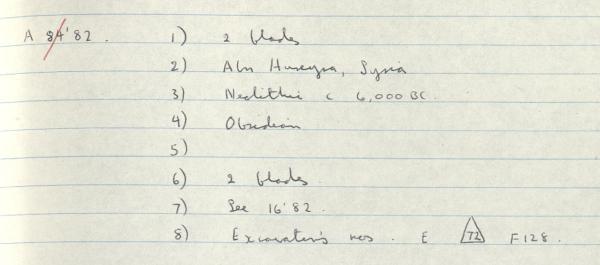 A 84'82. 1) 2 blades
2) Abu Hureyra, Syria
3) Neolithic c 6,000 BC.
4) Obsidian
5)
6) 2 blades
7) See 16'82.
8) Excavator's nos. E 72 F128.